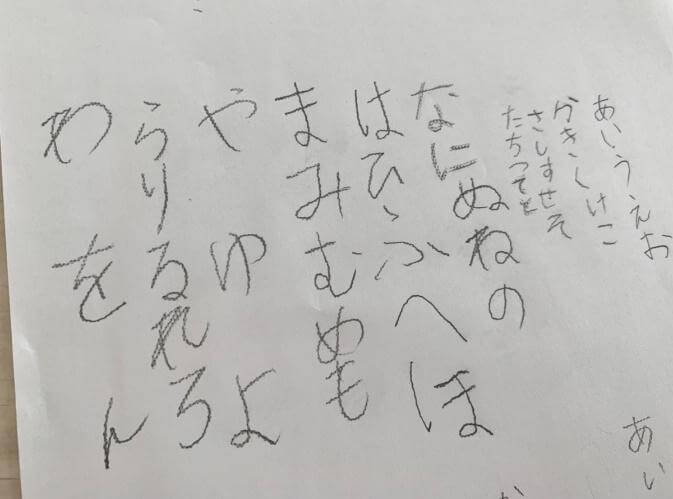 あいうえお
かきくけこ
さしすせそ
たちつてと
なにぬねの
はひふへほ
まみむめも
やゆよ
らりるれろ
わをん
あい
か